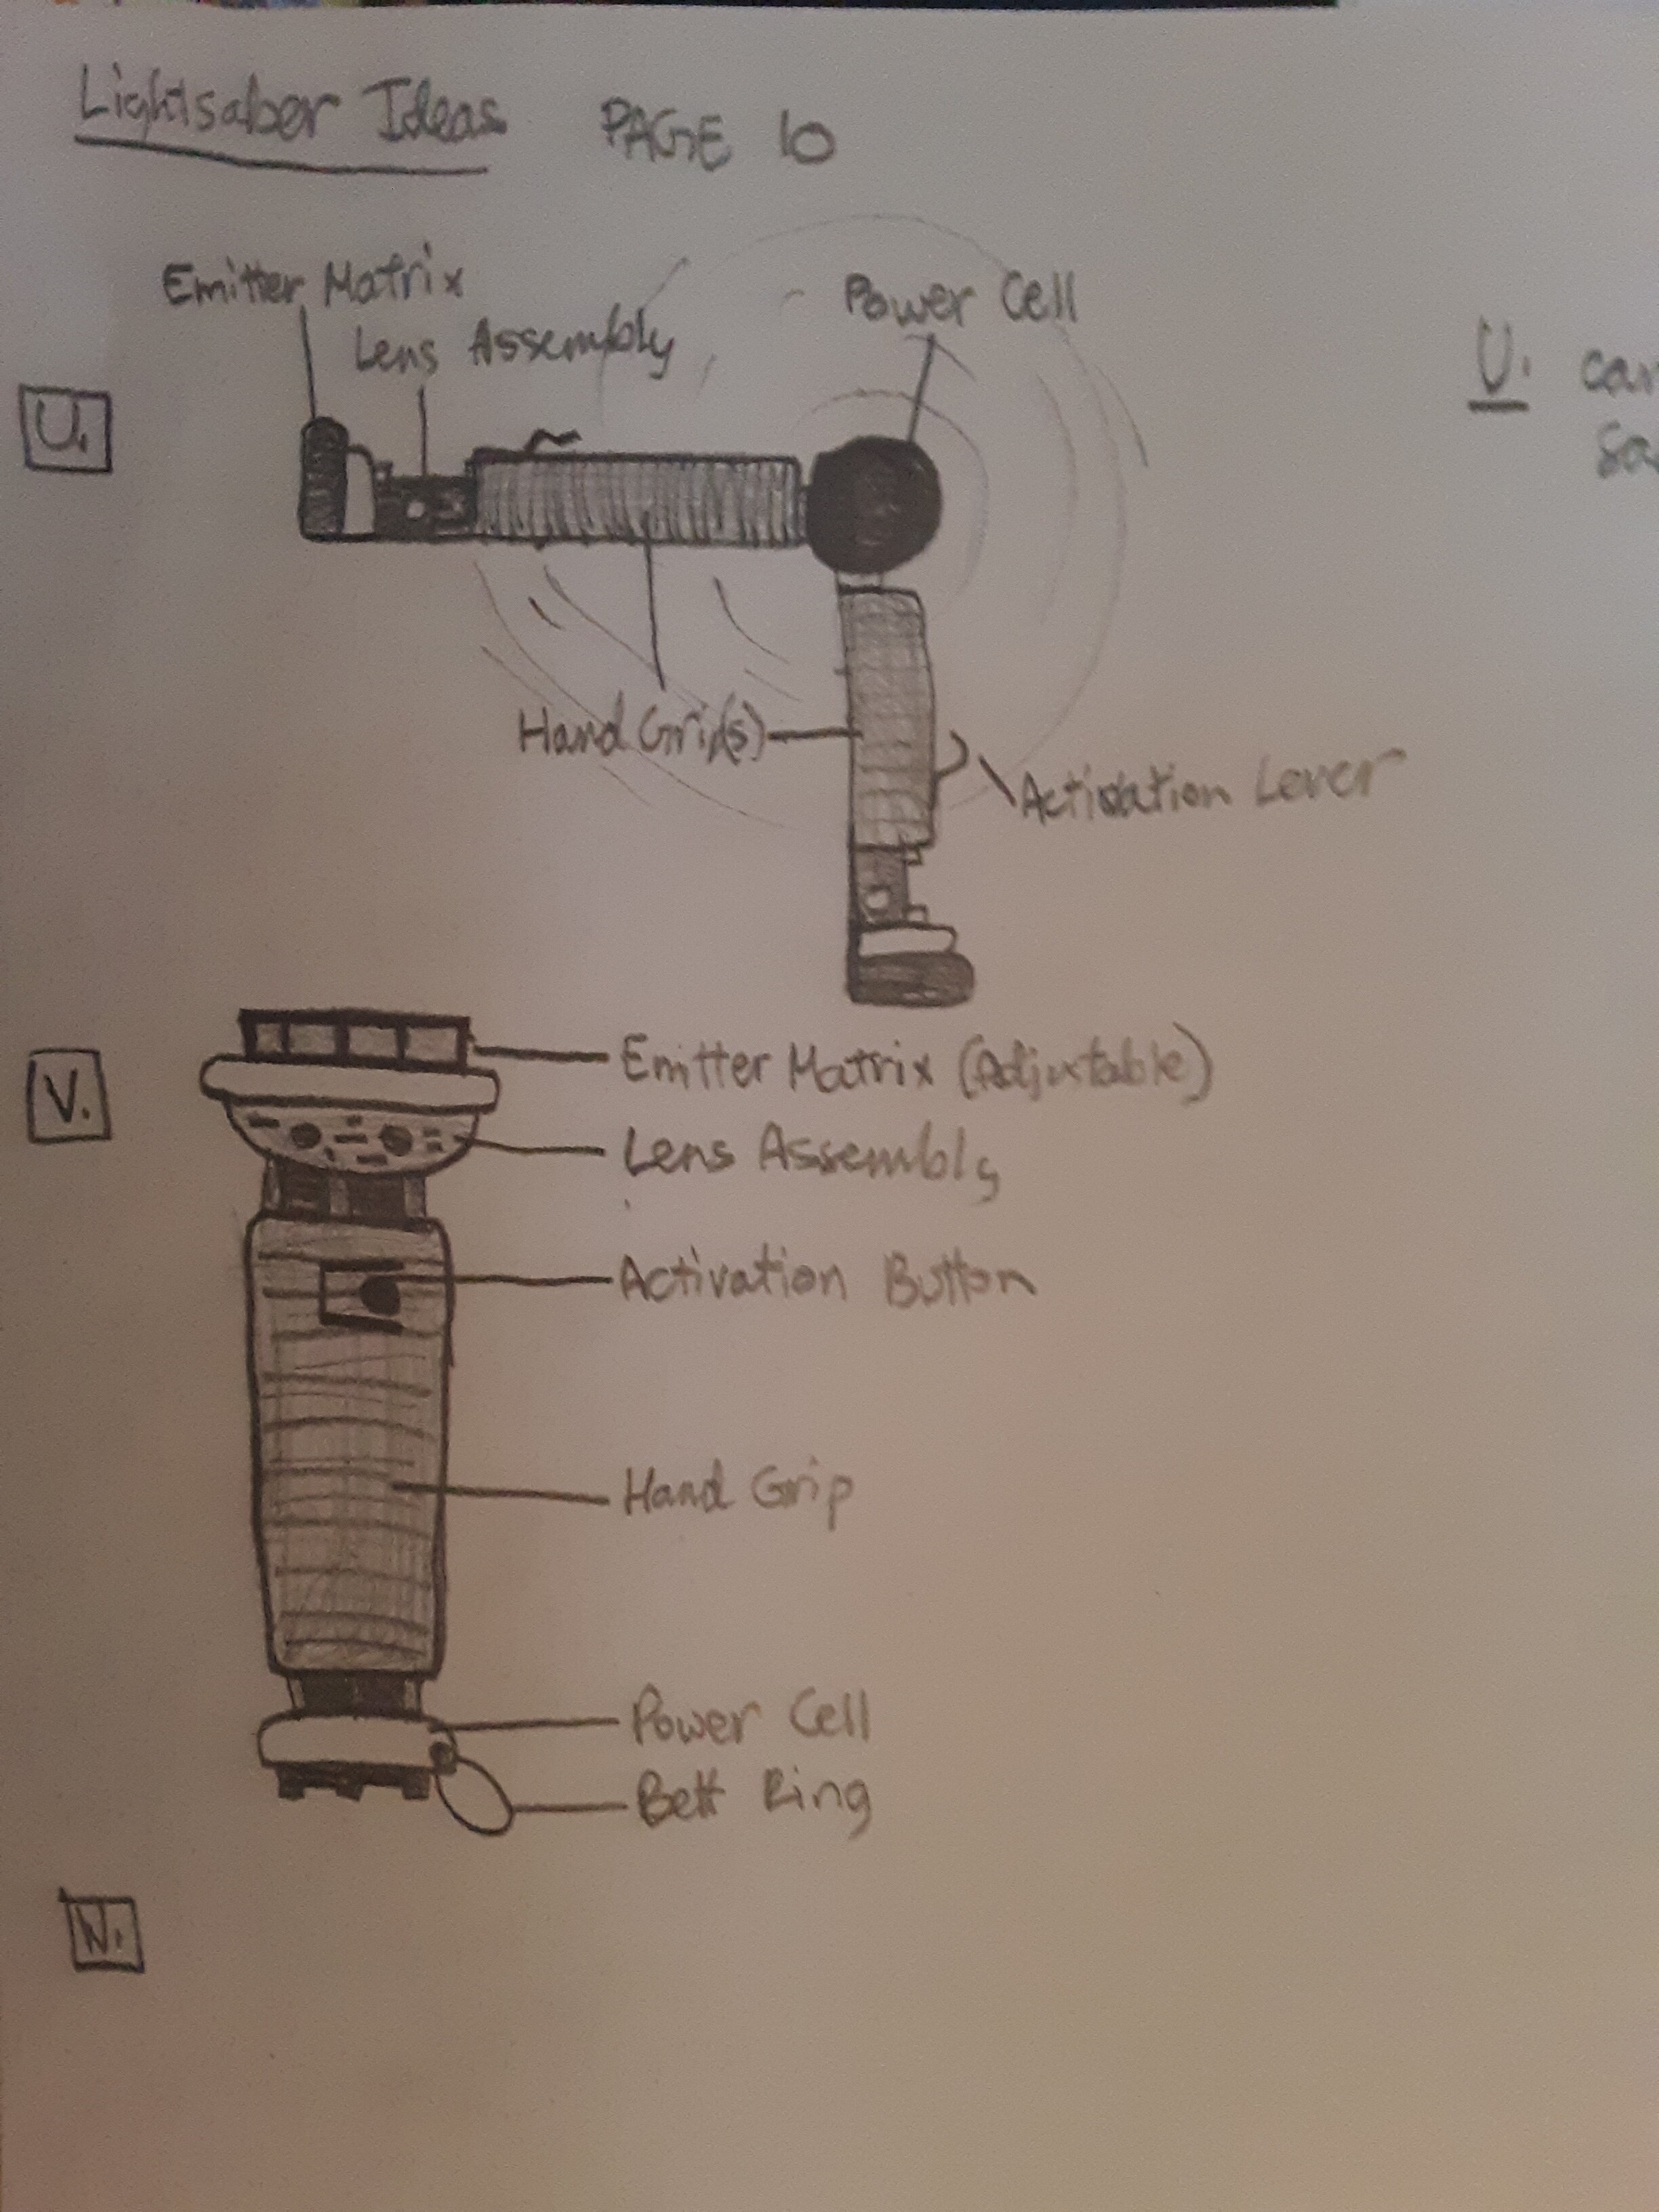 Lightsaber Ideas PAGE 10
Emitter Matrix
Lens Assembly
Power Cell
U.
U. can
Sa
Hand Grip(s)
Activation Lever
V.
Emitter Matrix (Adjustable)
Lens Assembly
Activation Button
Hand Grip
Power Cell
Belt Ring
W.